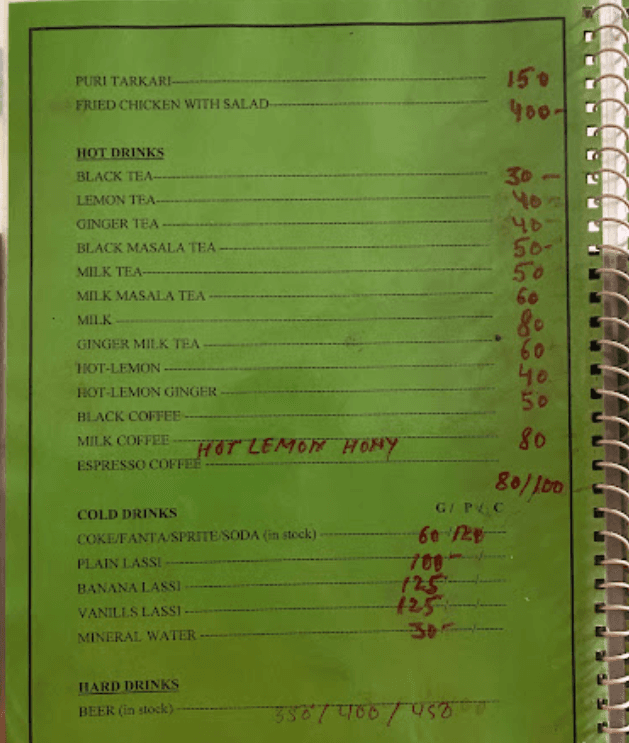 PURI TARKARI 150
FRIED CHICKEN WITH SALAD 400-
HOT DRINKS
BLACK TEA 30-
LEMON TEA 40-
GINGER TEA 40-
BLACK MASALA TEA 50-
MILK TEA 50
MILK MASALA TEA 60
MILK 80
GINGER MILK TEA 60
HOT-LEMON 40
HOT-LEMON GINGER 50
BLACK COFFEE
MILK COFFEE 80
HOT LEMON HONY
ESPRESSO COFFEE
80/100
COLD DRINKS G / P / C
COKE/FANTA/SPRITE/SODA (in stock) 60/120
PLAIN LASSI 100-
BANANA LASSI 125
VANILLS LASSI 125
MINERAL WATER 30-
HARD DRINKS
BEER (in stock) 350/400/450